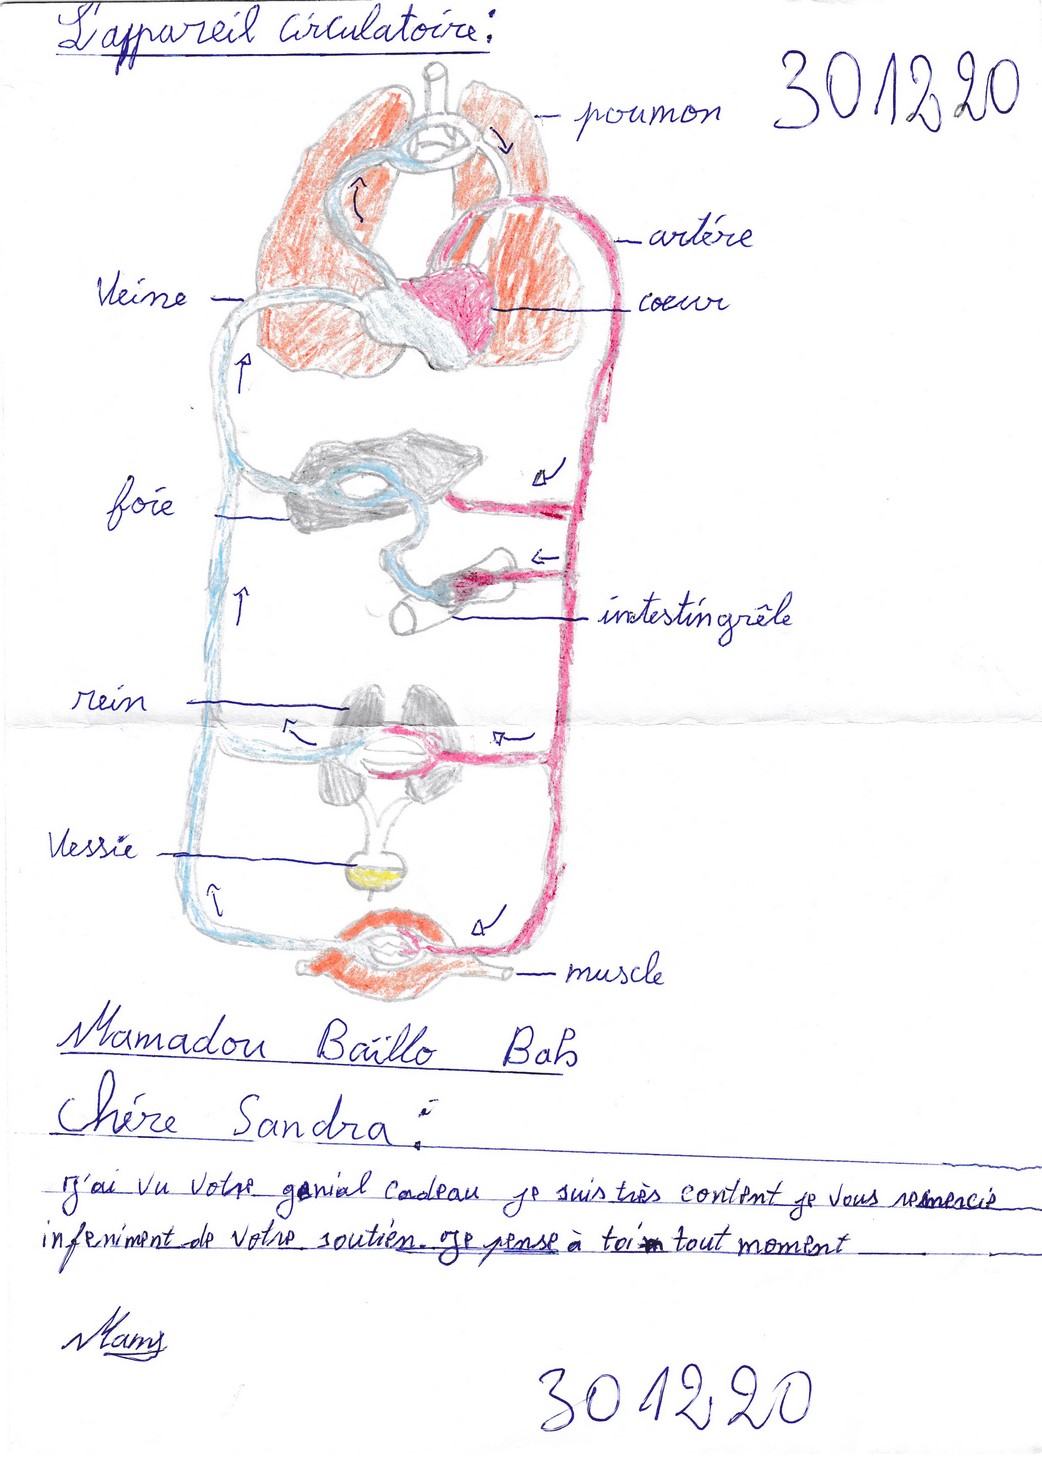 L'appareil circulatoire:
301220
poumon
artére
Veine
coeur
foie
intestingrêle
rein
Vessie
muscle
Mamadou Baïllo Bah
Chére Sandra:
J'ai vu votre génial cadeau je suis très content je vous remercie
infeniment de votre soutien. Je pense à toi tout moment
Mams
301220